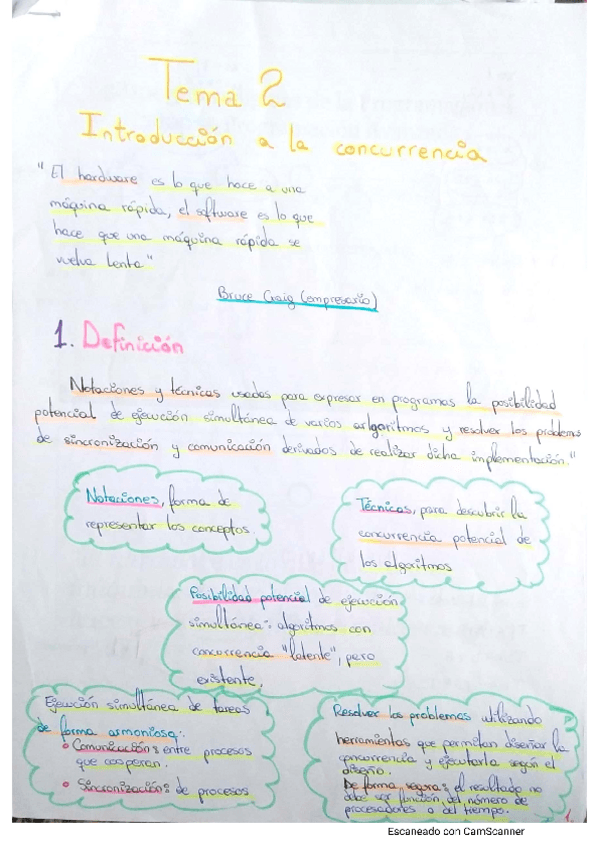 Tema 2
Introducción a la concurrencia
"El hardware es lo que hace a una
máquina rápida, el software es lo que
hace que una máquina rápida se
vuelva lenta"
Bruce Craig (empresario)
1. Definición
Notaciones y técnicas usadas para expresar en programas la posibilidad
potencial de ejecución simultánea de varios arlgoritmos y resolver los problems
de sincronización y comunicación derivados de realizar dicha implementación."
Notaciones, forma de
representar los conceptos.
Técnicas, para descubrir la
concurrencia potencial de
los algoritmos
Posibilidad potencial de ejecución
simultánea: algoritmos con
concurrencia "latente", pero
existente.
Ejecución simultánea de tareas
de forma armoniosa:
Comunicación: entre procesos
que cooperan.
Sincronización: de procesos
Resolver los problemas utilizando
herramientas que permitan diseñar la
concurrencia y ejecutarla según el
diseño.
De forma segura: el resultado no
debe ser función del número de
procesadores o del tiempo.
1.
Escaneado con CamScanner